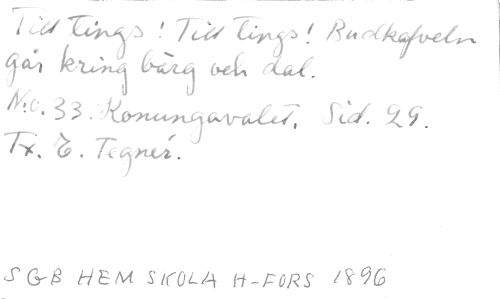 Till tings! Till tings! Budkafveln
går kring bärg och dal.
N:o. 33. Konungavalet. Sid. 29.
Tx. E. Tegnér.
SGB HEM SKOLA H-FORS 1896